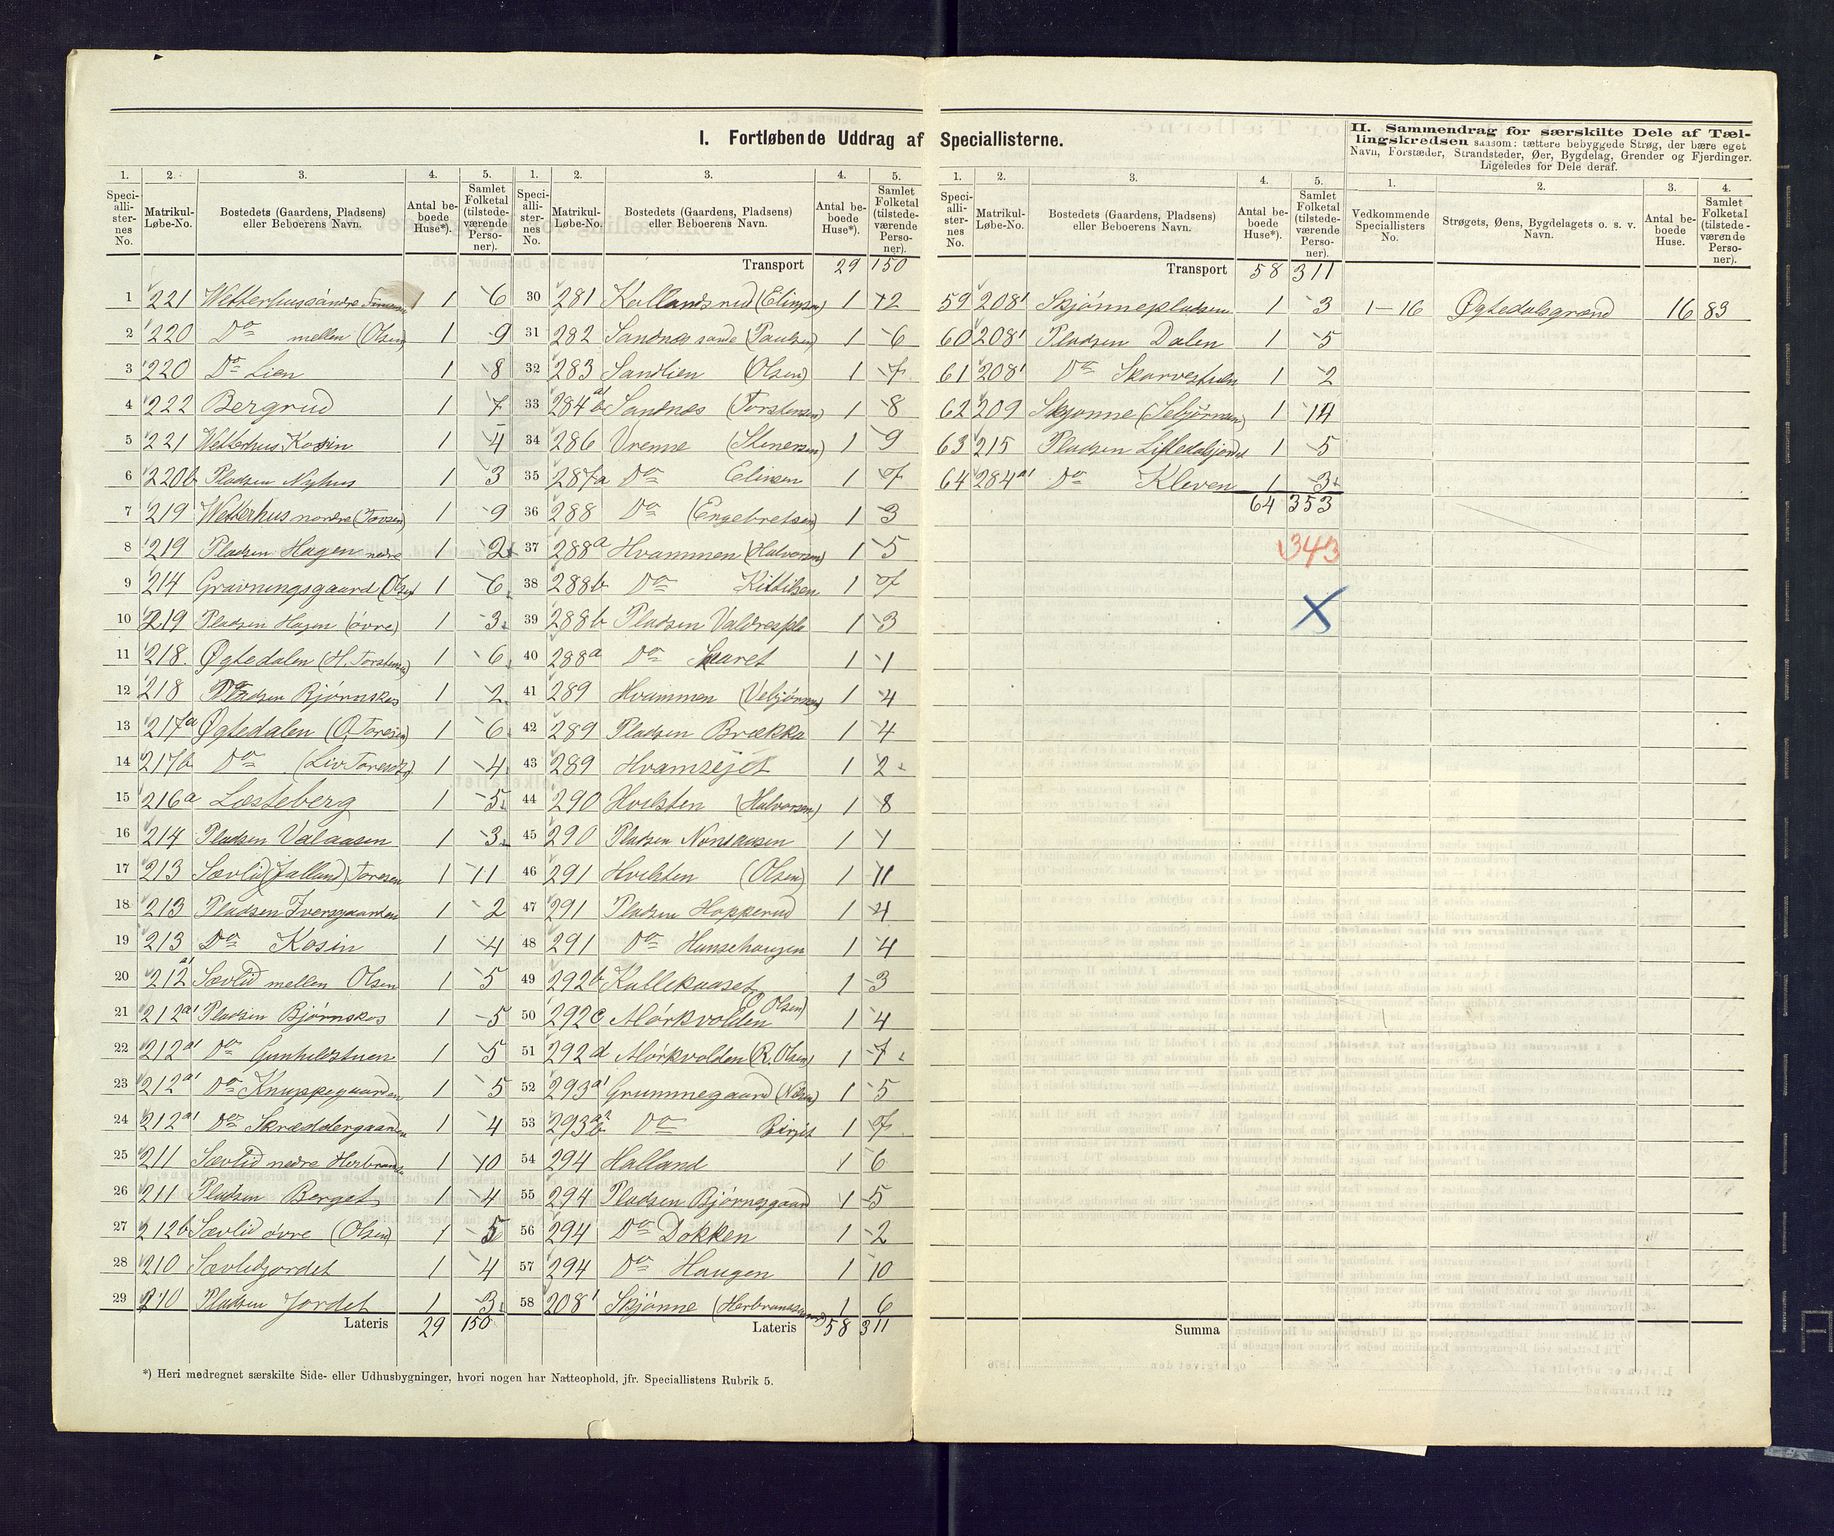 I. Fortløbende Uddrag af Speciallisterne.
1. 2. 3. 4. 5.
Speciallisternes No. Matrikul-Løbe-No. Bostedets (Gaardens, Pladsens) eller Beboerens Navn. Antal beboede Huse*). Samlet Folketal (tilstedeværende Personer).
1 221 Wetterhus søndre 1 6
2 220 Do mellen (Olsen) 1 9
3 220 Do Lien 1 8
4 222 Bergrud 1 7
5 221 Wetterhus Kosin 1 4
6 220b Pladsen Nyhus 1 3
7 219 Wetterhus nordre (Torsen) 1 9
8 219 Pladsen Hagen nedre 1 2
9 214 Gravningsgaard (Olsen) 1 6
10 219 Pladsen Hagen (øvre) 1 3
11 218 Øgtedalen (H. Torstensen) 1 6
12 218 Pladsen Bjørnskos 1 2
13 217a Øgtedalen (O. Toresen) 1 6
14 217b Do (Liv Toresdtr) 1 4
15 216a Læsteberg 1 5
16 214 Pladsen Valaasen 1 3
17 213 Sævlid (Jalland) Toresen 1 11
18 213 Pladsen Iversgaarden 1 2
19 213 Do Kosin 1 4
20 212a1 Sævlid mellen Olsen 1 5
21 212a1 Pladsen Bjørnskos 1 5
22 212a1 Do Gunhilstuen 1 5
23 212a1 Do Knuppegaarden 1 5
24 212a1 Do Skræddergaarden 1 4
25 211 Sævlid nedre Herbrandsen 1 10
26 211 Pladsen Berget 1 4
27 212b Sævlid øvre (Olsen) 1 5
28 210 Sævlidjordet 1 4
29 210 Pladsen Jordet 1 3
Lateris 29 150
*) Heri medregnet særskilte Side- eller Udhusbygninger, hvori nogen har Natteophold, jfr. Speciallistens Rubrik 5.
1. 2. 3. 4. 5.
Speciallisternes No. Matrikul-Løbe-No. Bostedets (Gaardens, Pladsens) eller Beboerens Navn. Antal beboede Huse*). Samlet Folketal (tilstedeværende Personer).
Transport 29 150
30 281 Kallandsrud (Elingsen) 1 12
31 282 Sandnes søndre (Paulsen) 1 6
32 283 Sandlien (Olsen) 1 7
33 284 Sandnes (Torstensen) 1 8
34 286 Vrenne (Stenersen) 1 9
35 287a Do Elinsen 1 7
36 288 Do (Engebretsen) 1 3
37 288a Hvammen (Halvorsen) 1 5
38 288b Do Kittilsen 1 7
39 288b Pladsen Valdrespla 1 3
40 288a Do Skaret 1 1
41 289 Hvammen (Vebjørnsen) 1 4
42 289 Pladsen Brækka 1 4
43 289 Hvamsejet 1 2
44 290 Hvilsten (Halvorsen) 1 8
45 290 Pladsen Nonsaasen 1 1
46 291 Hvilsten (Olsen) 1 11
47 291 Pladsen Hopperud 1 4
48 291 Do Hansehaugen 1 4
49 292b Kallekaaset 1 3
50 292c Mørkvolden (O Olsen) 1 4
51 292d Mørkvolden (R. Olsen) 1 7
52 293a1 Grammegaard (Nilsen) 1 5
53 293 Do Birgit 1 7
54 294 Halland 1 6
55 294 Pladsen Bjørnsgaard 1 5
56 294 Do Dokken 1 2
57 294 Do Haugen 1 10
58 208¹ Skjønne (Herbrandsen) 1 6
Lateris 58 311
1. 2. 3. 4. 5.
Speciallisternes No. Matrikul-Løbe-No. Bostedets (Gaardens, Pladsens) eller Beboerens Navn. Antal beboede Huse*). Samlet Folketal (tilstedeværende Personer).
Transport 58 311
59 208¹ Skjønnepladsen 1 3
60 208¹ Pladsen Dalen 1 5
61 208¹ Do Skarvestuen 1 2
62 209 Skjønne (Sebjørnsen) 1 14
63 215 Pladsen Lilledalsjordet 1 5
64 284a1 Do Kleven 1 3
64 353
343
X
Summa
II. Sammendrag for særskilte Dele af Tællingskredsen saasom: tættere bebyggede Strøg, der bære eget Navn, Forstæder, Strandsteder, Øer, Bygdelag, Grender og Fjerdinger. Ligeledes for Dele deraf.
1. 2. 3. 4.
Vedkommende Speciallisters No. Strøgets, Øens, Bygdelagets o. s. v. Navn. Antal beboede Huse. Samlet Folketal (tilstedeværende Personer).
1-16 Øgtedalsgrænd 16 83